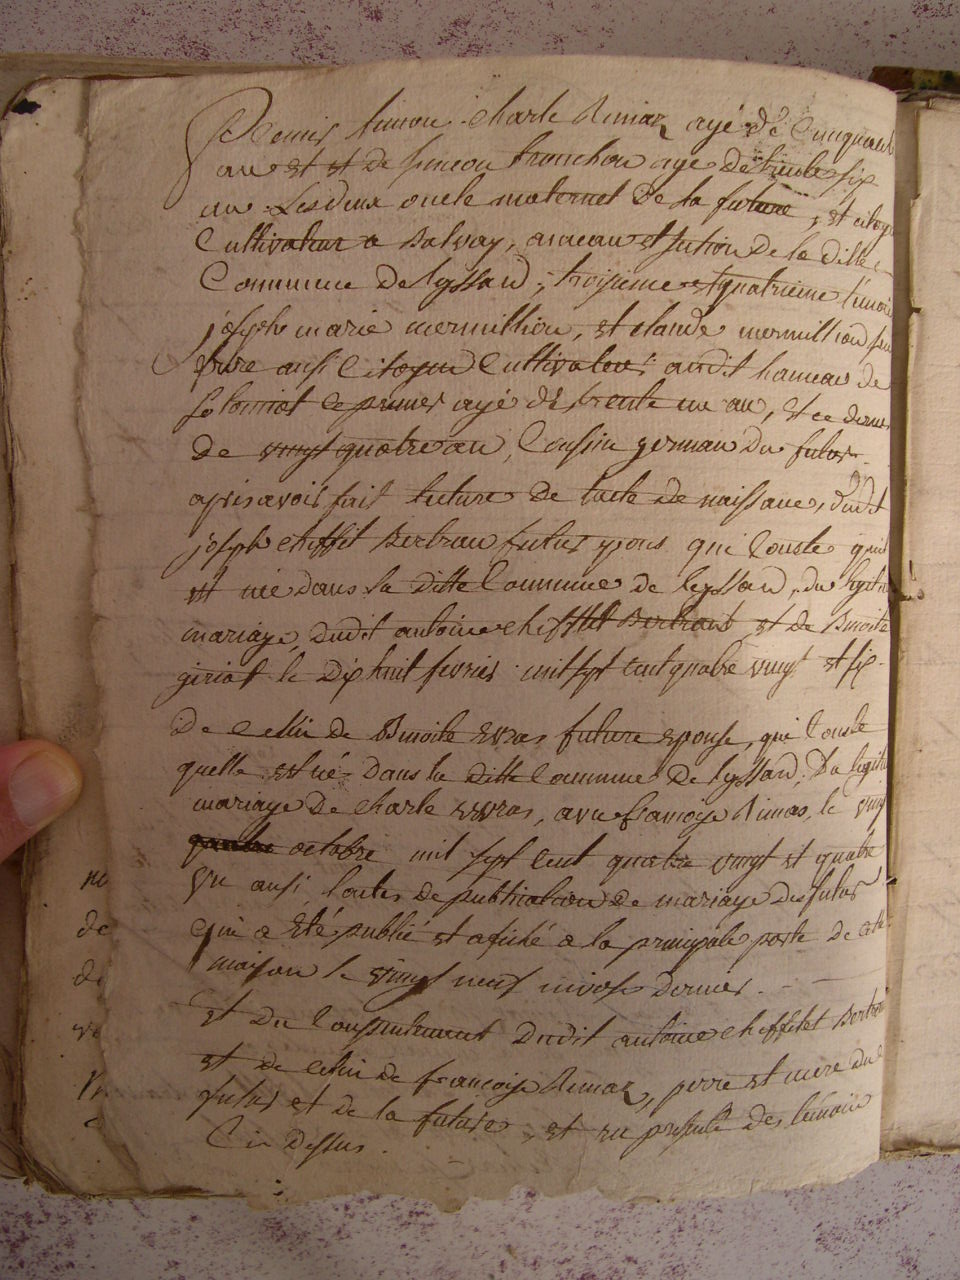 temoir charle Rimaz ayé de Cinquante
ans et et de simeon tronchon aye de trente six
ans. Lesdeux oncle maternel De la future, et citoye
Cultivateur a Balvay, ameau et section de la ditte
Commune De lyssard; troisieme et quatrieme temoin
joseph marie mermillion, et claude mermillion son
frere ausi Citoyen Cultivateur audit hameau de
Solomiat le premier ayé de trente un an, et ce dernier
de vingt quatre an, Cousin germain du futur
apres avoir fait lecture de lacte de naissance, dudit
joseph chiffilet Bertran futur epous qui Conste quil
est née dans la ditte Commune de leyssard, du legitime
mariage, dudit antoine chiffilet Bertrant et de Benoite
giriat le Dix huit fevrier mil sept cent quatre vingt et six.
de Cellui de Benoite Evras future epouse, qui Conste
quelle est né dans la ditte Commune De lyssard, Du legitim
mariage De charle evras, avec francoise Rimas, le vingt
octobre mil sept cent quatre vingt et quatre
Vu ausi lactes de publication de mariage des futur
qui a Eté publié et afiché a la principale porte de cette
maison le vingt neuf nivose dernier.
et du Consentement Dudit antoine chiffilet Bertran
et de celui de francoise Rimaz, perre et mere du
futur et de la future, et en presente des temoin
Ci Dessus.